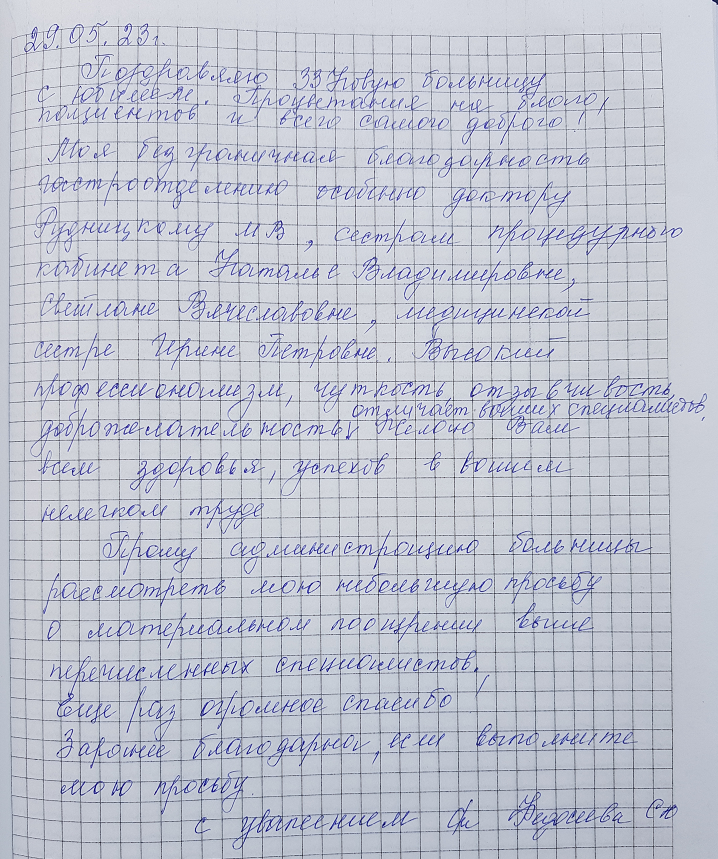 29.05.23г.
Поздравляю 33 Новую больницу
с юбилеем. Процветания на благо,
пациентов и всего самого доброго!
Моя безграничная благодарность
гастроотделению особенно доктору
Рудницкому МВ, сестрам процедурного
кабинета Наталье Владимировне,
Светлане Вячеславовне, медицинской
сестре Ирине Петровне. Высокий
профессионализм, чуткость, отзывчивость,
отличает ваших специалистов,
доброжелательность Желаю Вам
всем здоровья, успехов в вашем
нелегком труде
Прошу администрацию больницы
рассмотреть мою небольшую просьбу
о материальном поощрении выше
перечисленных специалистов.
Еще раз огромное спасибо!
Заранее благодарна, если выполните
мою просьбу.
с уважением Федосеева СЮ